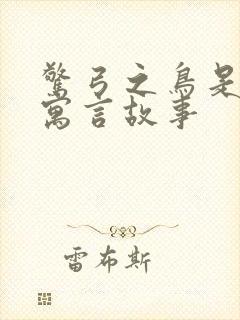 惊弓之鸟是
寓言故事
雷布斯